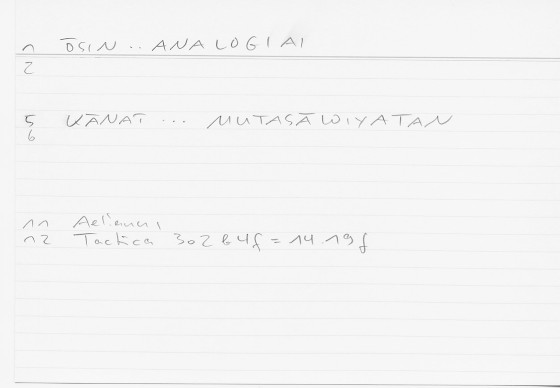 1 ŌSIN .. ANALOGIAI
2
5 KĀNAT ... MUTASĀWIYATAN
6
11 Aelianus
12 Tactica 302 b 4f = 14.19f